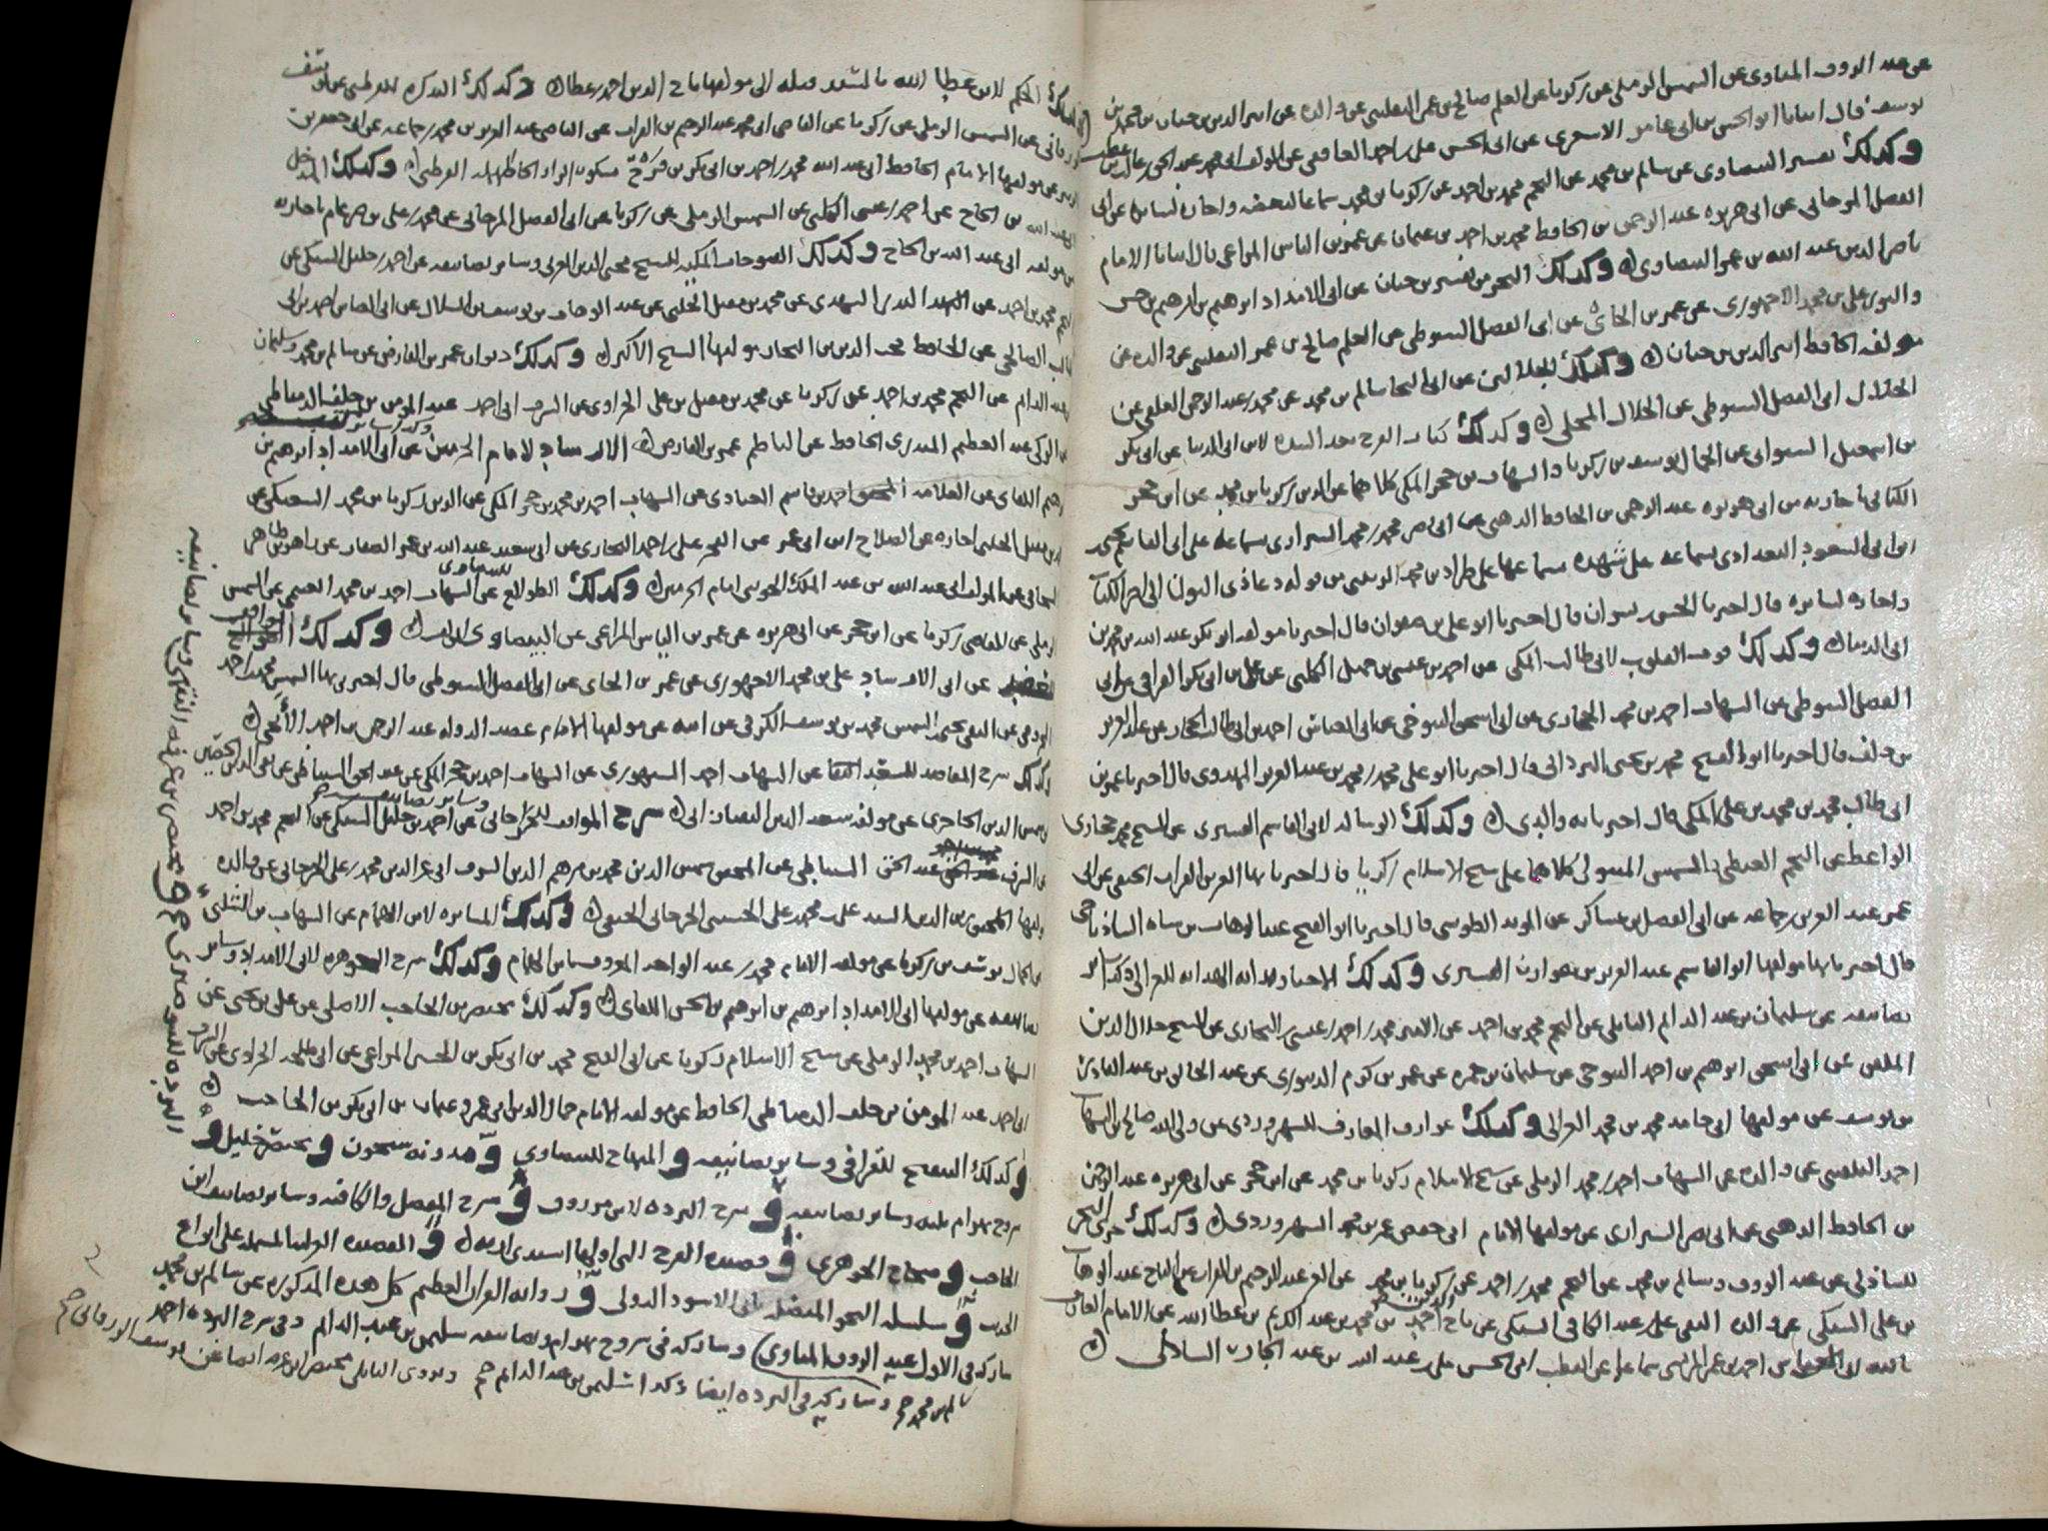 عن عبد الرووف المناوى عن الشمس الرملى عن زكريا عن العلم صالح بن عمر البلقينى عن والده عن اثير الدين بن حيان بن محمد بن
يوسف قال انبانا ابو الحسن بن ابى عامر الاشعرى عن ابى الحسن على بن احمد الغافقى عن المولف ابى محمد عبد الحق بن غالب بن عطيه
وكذلك تفسير البيضاوى عن سالم بن محمد عن النجم محمد بن احمد عن زكريا بن محمد سماعا لبعضه واجازة لسائره عن ابى
الفضل المرجانى عن ابى هريره عبد الرحمن بن الحافظ محمد بن احمد بن عثمان عن عمر بن الياس المراغى قال انبانا الامام
ناصر الدين عبد الله بن عمر البيضاوى وكذلك البحر من تفسير بن حيان عن ابى الامداد ابرهيم بن ابرهيم بن حسن
والنور على بن محمد الاجهورى عن عمر بن الجاى عن ابى الفضل السيوطى عن العلم صالح بن عمر البلقينى عن والده عن
مولفه الحافظ اثير الدين بن حيان وكذلك الجلالين عن ابى النجا سالم بن محمد عن محمد بن عبد الرحمن العلقمى عن
الجلال ابى الفضل السيوطى عن الجلال المحلى وكذلك كتاب الفرج بعد الشده لابن ابى الدنيا عن ابى بكر
بن اسمعيل الشنوانى عن الجمال يوسف بن زكريا والشهاب بن حجر المكى كلاهما عن الزين زكريا بن محمد عن ابن حجر
الكنانى باجازته من ابى هريره عبد الرحمن بن الحافظ الذهبى عن ابى نصر محمد بن محمد الشيرازى بسماعه على ابى القاسم يحيى
ابن ابى السعود البغدادى بسماعه على شهده بسماعها على طراد بن محمد الزينبى من قوله دعا ذى النون الى اخر الكتاب
واجازه لسائره قال اخبرنا الحسين بن بشران قال اخبرنا ابو على بن صفوان قال اخبرنا مولفه ابو بكر عبد الله بن محمد بن
ابى الدنيا وكذلك قوت القلوب لابى طالب المكى عن احمد بن عيسى بن جميل الكلبى عن على بن ابى بكر القرافى عن ابى
الفضل السيوطى عن الشهاب احمد بن محمد الحجازى عن ابى اسحق التنوخى عن ابى العباس احمد بن ابى طالب الحجار عن عبد العزيز
بن دلف قال اخبرنا ابو الفتح محمد بن يحيى البردانى قال اخبرنا ابو على محمد بن محمد بن عبد العزيز المهدوى قال اخبرنا عمر بن
ابى طالب محمد بن محمد بن على المكى قال اخبرنا به والدى وكذلك الرساله لابى القاسم القشيرى عن الشيخ محمد حجازى
الواعظ عن النجم الغيطى والشمس كلاهما عن شيخ الاسلام زكريا قال اخبرنا بها العز بن الفرات الحنفى عن ابى
عمر عبد العزيز بن جماعه عن ابى الفضل بن عساكر عن المويد الطوسى قال اخبرنا ابو الفتح عبد الوهاب بن شاه الشاذياخى
قال اخبرنا بها مولفها ابو القاسم عبد الكريم بن هوازن القشيرى وكذلك الاحيا وبداية الهدايه للغزالى وكذا سائر
تصانيفه عن سليمان بن عبد الدائم البابلى عن النجم محمد بن احمد عن الامين محمد بن احمد بن عيسى النجارى عن الشيخ جلال الدين
الملقن عن ابى اسحق ابرهيم بن احمد التنوخى عن سليمان بن حمزه عن عمر بن كرم الدينورى عن عبد الخالق بن عبد القادر
بن يوسف عن مولفها ابى حامد محمد بن محمد الغزالى وكذلك عوارف المعارف للسهروردى عن ولى الله صالح بن الشهاب
احمد البلقينى عن والده عن الشهاب احمد بن محمد الرملى عن شيخ الاسلام زكريا بن محمد عن ابن حجر عن ابى هريره عبد الرحمن
بن الحافظ الذهبى عن ابى نصر الشيرازى عن مولفها الامام ابى حفص عمر بن محمد السهروردى وكذلك حزب البحر
للشاذلى عن عبد الرووف وسالم بن محمد عن النجم محمد بن احمد عن زكريا بن محمد عن العز عبد الرحيم بن الفرات عن التاج عبد الوهاب
بن على السبكى عن والده التقى على بن عبد الكافى السبكى عن تاج الدين احمد بن محمد بن عبد الكريم بن عطا الله عن الامام العارف
بالله ابى العباس احمد بن عمر المرسى سماعا عن القطب ابى الحسن على بن عبد الله بن عبد الجبار الشاذلى
وكذلك الحكم لابن عطا الله بالسند قبله الى مولفها تاج الدين احمد بن عطا وكذلك التذكره للقرطبى عن يوسف
الزرقانى عن الشمس الرملى عن زكريا عن القاضى ابى محمد عبد الرحيم بن الفرات عن القاضى عبد العزيز بن محمد بن جماعه عن ابى جعفر بن
الزبير عن مولفها الامام الحافظ ابى عبد الله محمد بن احمد بن ابى بكر بن فرح بسكون الراء والحاء المهمله القرطبى وكذلك المدخل
لابى عبد الله بن الحاج عن احمد بن عيسى الكلبى عن الشمس الرملى عن زكريا عن ابى الفضل المرجانى عن محمد بن على بن ضرغام باجازته
من مولفه ابى عبد الله بن الحاج وكذلك الفتوحات المكيه للشيخ محيى الدين العربى وسائر تصانيفه عن احمد بن خليل السبكى عن
النجم محمد بن احمد عن البدر المشهدى عن محمد بن مقبل الحلبى عن عبد الوهاب بن يوسف بن السلار عن ابى العباس احمد بن ابى
طالب الصالحى عن الحافظ محب الدين بن النجار مولفها الشيخ الاكبر وكذلك ديوان عمر بن الفارض عن سالم بن محمد وسليمان
بن عبد الدائم عن النجم محمد بن احمد عن زكريا عن محمد بن مقبل بن على الحراوى عن الشرف ابى احمد عبد المومن بن خلف الدمياطى
عن الزكى عبد العظيم المنذرى الحافظ عن الناظم عمر بن الفارض الارشاد لامام الحرمين عن ابى الامداد ابرهيم بن
ابرهيم اللقانى عن العلامه احمد بن قاسم العبادى عن الشهاب احمد بن محمد بن حجر المكى عن الزين زكريا بن محمد السبكى عن
ابن مقبل الحلبى اجازه عن الصلاح ابن ابى عمر عن الفخر على بن احمد البخارى عن ابى سعيد عبد الله بن عمر الصفار عن زاهر بن طاهر
الشحامى عن المولف ابى عبد الله بن عبد الملك الجوينى امام الحرمين وكذلك الطوالع للبيضاوى عن الشهاب احمد بن محمد الغنيمى عن الشمس
الرملى عن القاضى زكريا عن ابن حجر عن ابى هريره عن عمر بن الياس المراغى عن البيضاوى وكذلك المواقف
للعضد عن ابى الارشاد على بن محمد الاجهورى عن عمر بن الجاى عن ابى الفضل السيوطى قال اخبرنى بها الشمس محمد بن احمد
عن التقى يحيى بن الشمس محمد بن يوسف الكرمانى عن ابيه عن مولفها الامام عضد الدوله عبد الرحمن بن احمد الايجى
وكذلك شرح المقاصد للسعد ايضا عن الشهاب احمد السنهورى عن الشهاب احمد بن حجر المكى عن عبد الحق السنباطى عن تقى الدين الحصنى
عن شمس الدين الحاجرى عن مولفه سعد الدين التفتازانى وسائر تصانيفه شرح المواقف للجرجانى عن احمد بن خليل السبكى عن النجم محمد بن احمد
عن الشرف عبد الحق السنباطى عن المحقق شمس الدين محمد بن مرهم الدين الشروانى عن الدين محمد بن على الجرجانى عن والده
مولفها المحقق زين الدين السيد على بن محمد بن على الحسينى الجرجانى الحنفى وكذلك المسايره لابن الهمام عن الشهاب بن الشلبى
عن الجمال يوسف بن زكريا عن مولفه الامام محمد بن عبد الواحد المعروف بابن الهمام وكذلك شرح الجوهره لابى الامداد وسائر
تصانيفه عن مولفها ابى الامداد ابرهيم بن ابرهيم بن الحسن اللقانى وكذلك مختصر بن الحاجب الاصلى عن على بن يحيى عن
الشهاب احمد بن محمد الرملى عن شيخ الاسلام زكريا عن ابى الفتح محمد بن ابى بكر بن الحسين المراغى عن ابى طلحه الحراوى عن الشرف
ابى احمد عبد المومن بن خلف الدمياطى الحافظ عن مولفه الامام جمال الدين ابى عمرو عثمان بن ابى بكر بن الحاجب
وكذلك التنقيح للقرافى وسائر تصانيفه والمنهاج للبيضاوى ومدونه سحنون ومختصر خليل و
شروح بهرام عليه وسائر تصانيفه وشرح البرده لابن مرزوق وشرح المفصل والكافيه وسائر تصانيف ابن
الحاجب وصحاح الجوهرى وقصيده الفرج التى اولها اشتدى ازمه والقصيده الغراميه المشتمله على انواع
الحديث وسلسله النحو المتصله بابى الاسود الدولى وروايه القران العظيم كل هذه المذكوره عن سالم بن محمد
شاركه فى الاول عبد الرووف المناوى وشاركه فى شروح بهرام وتصانيفه سليمن بن عبد الدائم وفى شرح البرده احمد
سالم بن محمد صح وشاركه فى البرده ايضا وكذا سليمن بن عبد الدائم صح ويروى البابلى مختصر ابن عرفه ايضا عن يوسف الزرقانى صح
البرده للبوصيرى صح ومختصر بن عرفه الفقهى وسائر تصانيفه